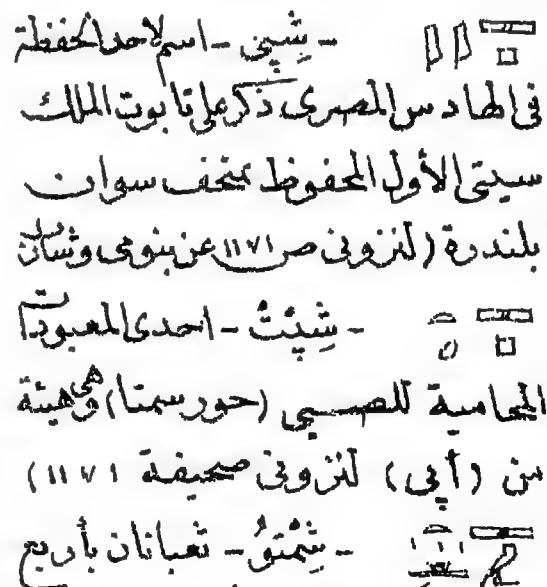 - شِپِى - اسم لاحد الحفظة
فى الهادس المصرى ذكر على تابوت الملك
سيتى الأول المحفوظ بمتحف سوان
بلندرة (لنزونى ص ١١٧١ عن بنومى وشارل
- شِپِتْ - احدى المعبودات
المحامية للصبى (حورسمتا) وهى هيئة
من (أپى) لنزونى صحيفة ١١٧١)
- شِمْتىُ - ثعبانان بأربع